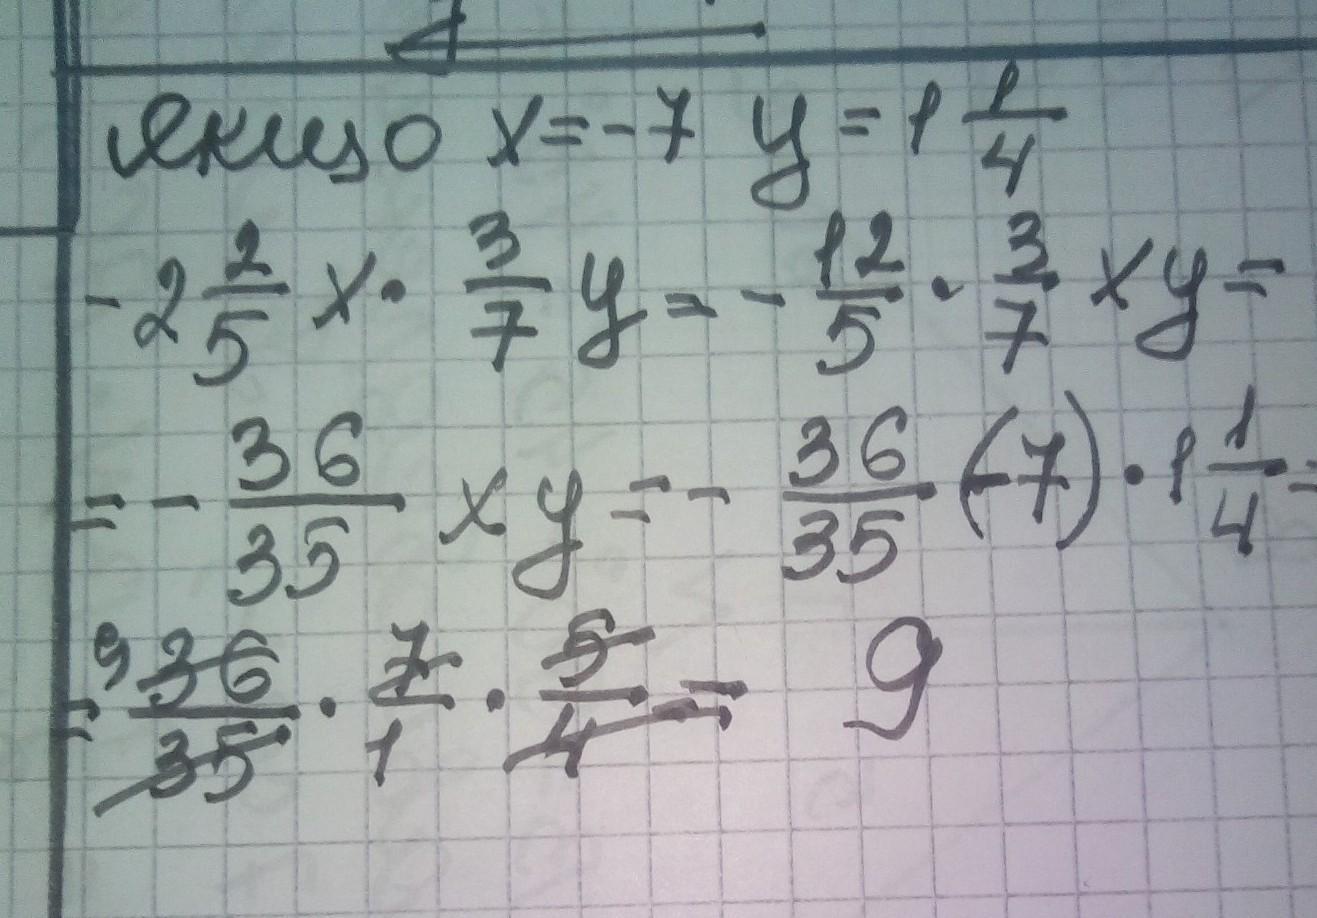 якщо x=-7 y=1 1/4
-2 2/5 x · 3/7 y = - 12/5 · 3/7 xy =
= - 36/35 xy = - 36/35 (-7) · 1 1/4 =
= 9 36/35 · 7/1 · 5/4 = 9